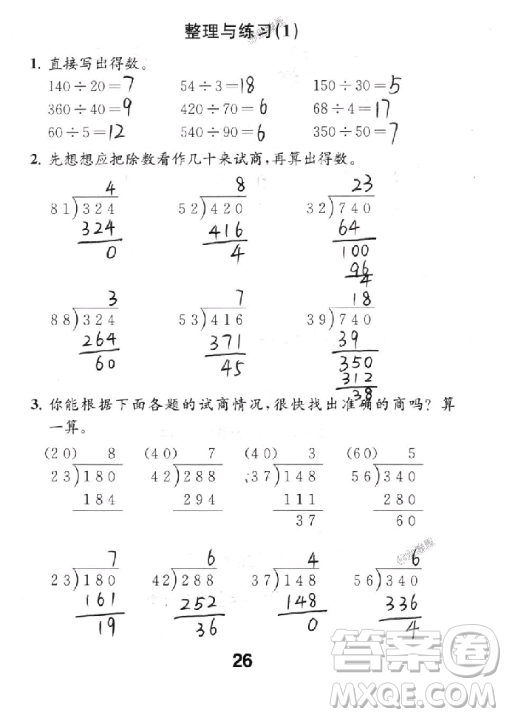 整理与练习(1)
1. 直接写出得数。
140÷20=7 54÷3=18 150÷30=5
360÷40=9 420÷70=6 68÷4=17
60÷5=12 540÷90=6 350÷50=7
2. 先想想应把除数看作几十来试商,再算出得数。
4 8 23
81)324 52)420 32)740
324 416 64
0 4 100
96
4
3 7 18
88)324 53)416 39)740
264 371 39
60 45 350
312
38
3. 你能根据下面各题的试商情况,很快找出准确的商吗? 算
一算。
(20) 8 (40) 7 (40) 3 (60) 5
23)180 42)288 37)148 56)340
184 294 111 280
37 60
7 6 4 6
23)180 42)288 37)148 56)340
161 252 148 336
19 36 0 4
26
答案圈
MXQE.COM